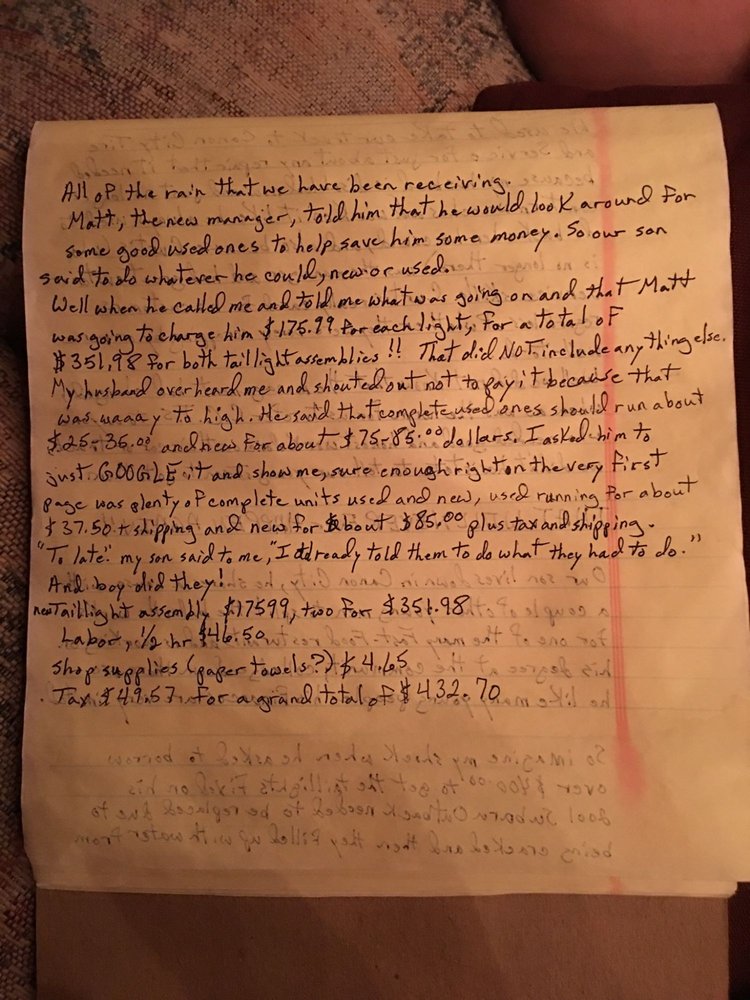 All of the rain that we have been receiving.
Matt, the new manager, told him that he would look around for
some good used ones to help save him some money. So our son
said to do whatever he could, new or used.
Well when he called me and told me what was going on and that Matt
was going to charge him $175.99 for each light, for a total of
$351.98 for both taillight assemblies!! That did NOT include anything else.
My husband overheard me and shouted out not to pay it because that
was waaay to high. He said that complete used ones should run about
$25-35.00 and new for about $75-85.00 dollars. I asked him to
just GOOGLE it and show me, sure enough right on the very first
page was plenty of complete units used and new, used running for about
$37.50 + shipping and new for about $85.00 plus tax and shipping.
"To late." my son said to me, "I already told them to do what they had to do."
And boy did they!
new Taillight assembly $17599, two for $351.98
Labor, 1/2 hr $46.50
shop supplies (paper towels?) $4.65
Tax $49.57 for a grand total of $432.70